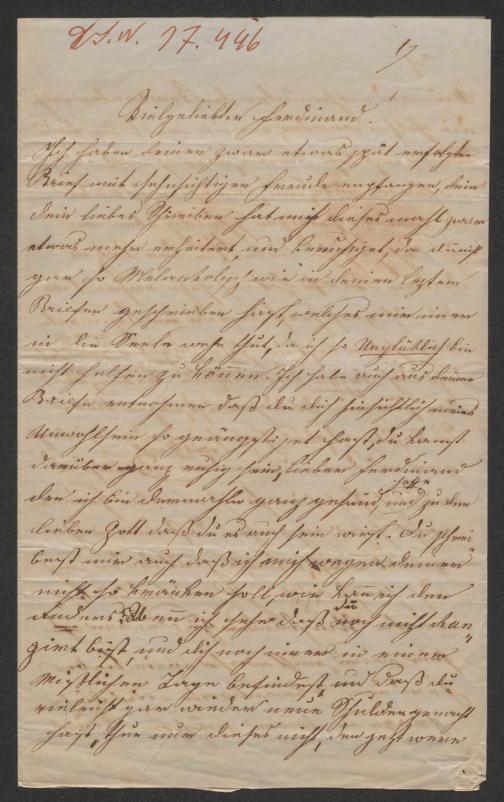 I.N. 17.446
1)
Vielgeliebter Ferdinand!
Ich habe deinen zwar etwas spät erfolgten
Brief mit sehnsichtiger Freude empfangen, dein
dein liebes Schreiben hat mich dieses mahl zwar
etwas mehr erheitert, und beruhiget, da du nicht
gar so Melancholisch wie in deinen leztem
Briefen geschrieben hast, welches mir imer
in die Seele wehe thut, da ich so Unglüklich bin
nicht helfen zu können. Ich habe auch aus deinem
Briefe entnohmen daß du dich hinsichtlich meines
Unwohlsein so geängstiget hast, du kanst
darüber ganz ruhig sein, lieber Ferdinand
den ich bin dermahln ganz gesund, und hoffe zu den
lieben Gott daß du es auch sein wirst. Du schrei
berst mir auch daß ich mich wegen deiner
nicht so kränken soll, wie kann ich den
anders wenn ich sehe daß du noch nicht chan
girt bist, und dich noch imer in einer
mißlichen Lage befindest, und daß du
vieleicht gar wieder neue Schulden gemacht
hast, thue nur dieses nicht, den jezt were